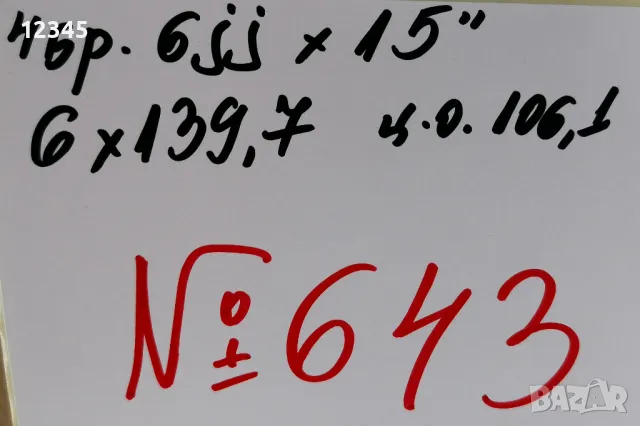 12345
4бр. 6jj x 15"
6 x 139,7 ц.о. 106,1
№ 643
BAZAR